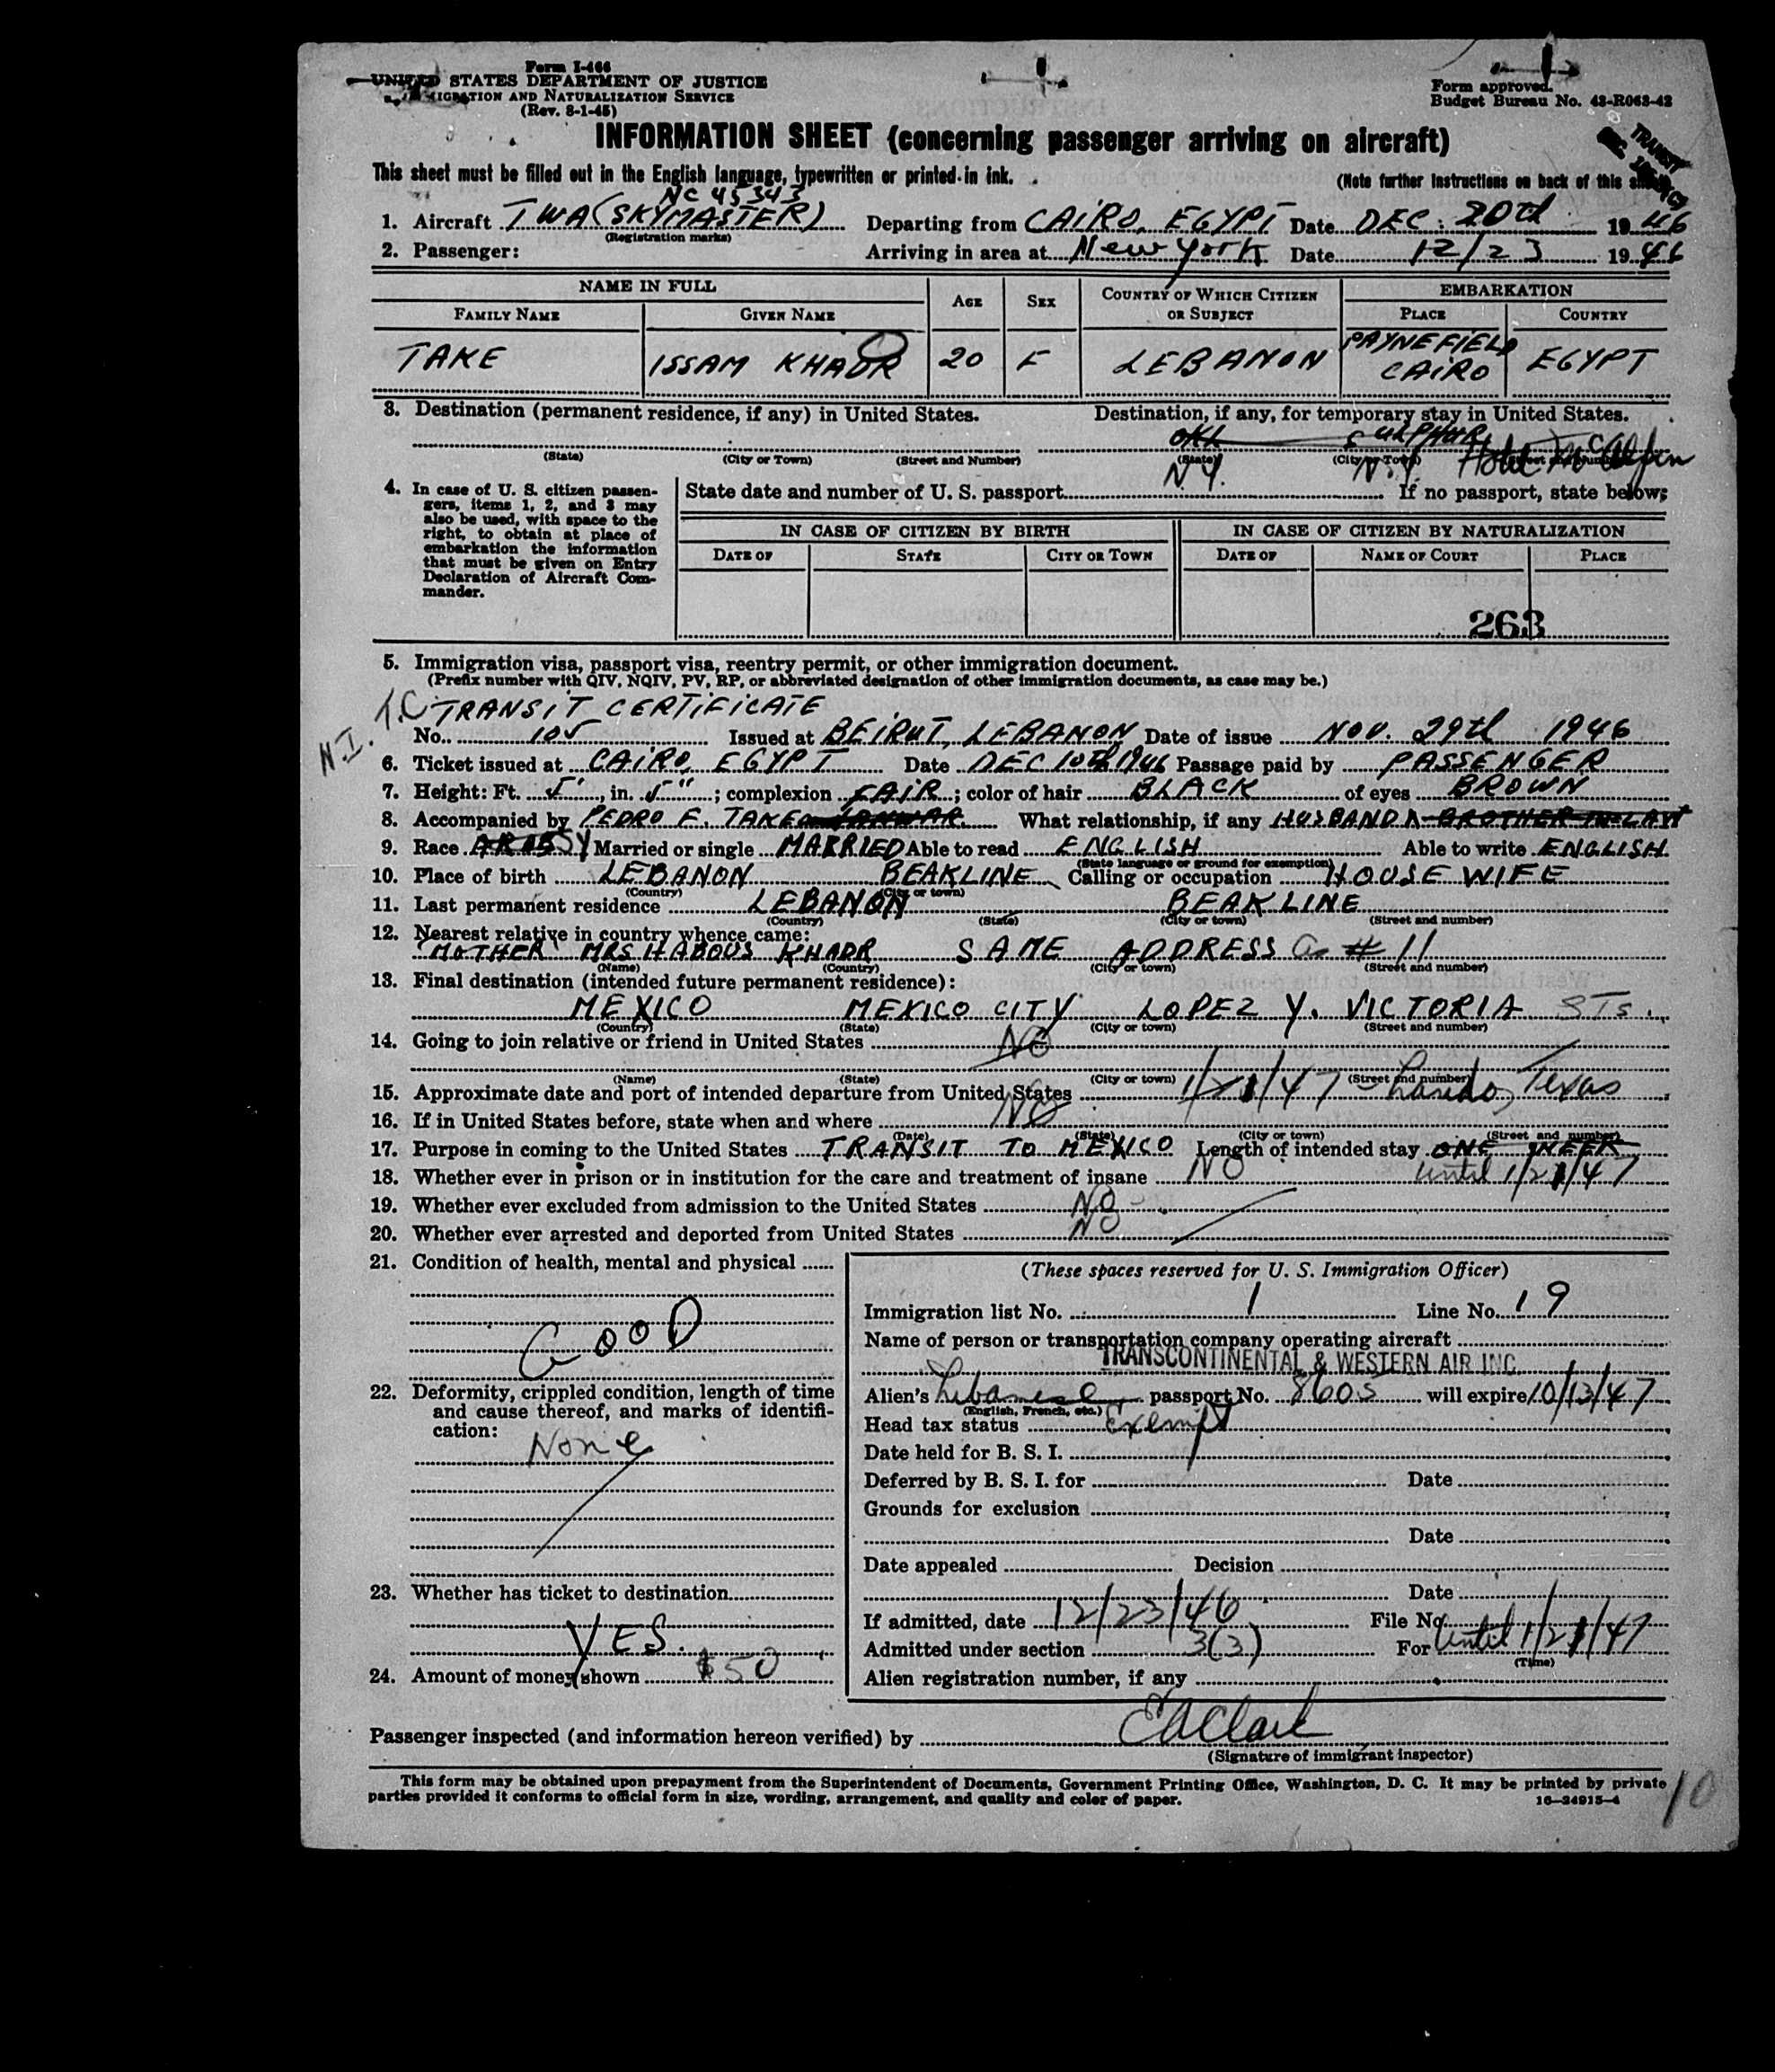 Form I-466
UNITED STATES DEPARTMENT OF JUSTICE
IMMIGRATION AND NATURALIZATION SERVICE
(Rev. 8-1-45)
Form approved.
Budget Bureau No. 43-R063-42
INFORMATION SHEET (concerning passenger arriving on aircraft)
TRANSIT
This sheet must be filled out in the English language, typewritten or printed in ink.
(Note further instructions on back of this sheet)
NC 45343
1. Aircraft TWA (SKYMASTER) Departing from CAIRO, EGYPT Date DEC. 20th 1946
(Registration marks)
2. Passenger: Arriving in area at New York Date 12/23 1946
NAME IN FULL AGE SEX COUNTRY OF WHICH CITIZEN OR SUBJECT EMBARKATION
FAMILY NAME GIVEN NAME PLACE COUNTRY
TAKE ISSAM KHADR 20 F LEBANON PAYNEFIELD CAIRO EGYPT
3. Destination (permanent residence, if any) in United States. Destination, if any, for temporary stay in United States.
OKL SULPHUR
(State) (City or Town) (Street and Number) (State) (City or Town) (Street and Number)
N.Y. N.Y. Hotel McAlpin
4. In case of U. S. citizen passen-
gers, items 1, 2, and 3 may
also be used, with space to the
right, to obtain at place of
embarkation the information
that must be given on Entry
Declaration of Aircraft Com-
mander.
State date and number of U. S. passport If no passport, state below:
IN CASE OF CITIZEN BY BIRTH IN CASE OF CITIZEN BY NATURALIZATION
DATE OF STATE CITY OR TOWN DATE OF NAME OF COURT PLACE
263
5. Immigration visa, passport visa, reentry permit, or other immigration document.
(Prefix number with QIV, NQIV, PV, RP, or abbreviated designation of other immigration documents, as case may be.)
N.I. T.C TRANSIT CERTIFICATE
No. 105 Issued at BEIRUT, LEBANON Date of issue NOV. 29th 1946
6. Ticket issued at CAIRO, EGYPT Date DEC 10th 1946 Passage paid by PASSENGER
7. Height: Ft. 5', in. 5"; complexion FAIR; color of hair BLACK of eyes BROWN
8. Accompanied by PEDRO E. TAKE What relationship, if any HUSBAND BROTHER-IN-LAW
9. Race SY Married or single MARRIED Able to read ENGLISH Able to write ENGLISH
(State language or ground for exemption)
10. Place of birth LEBANON BEAKLINE Calling or occupation HOUSE WIFE
(Country) (City or town)
11. Last permanent residence LEBANON BEAKLINE
(Country) (State) (City or town) (Street and number)
12. Nearest relative in country whence came:
MOTHER MRS HABOUS KHADR SAME ADDRESS as # 11
(Name) (Country) (City or town) (Street and number)
13. Final destination (intended future permanent residence):
MEXICO MEXICO CITY LOPEZ Y. VICTORIA STS.
(Country) (State) (City or town) (Street and number)
14. Going to join relative or friend in United States NO
(Name) (State) (City or town) (Street and number)
15. Approximate date and port of intended departure from United States 1/21/47 - Laredo, Texas
16. If in United States before, state when and where NO
(Date) (State) (City or town) (Street and number)
17. Purpose in coming to the United States TRANSIT TO MEXICO Length of intended stay ONE WEEK
until 1/21/47
18. Whether ever in prison or in institution for the care and treatment of insane NO
19. Whether ever excluded from admission to the United States NO
20. Whether ever arrested and deported from United States NO
21. Condition of health, mental and physical
GOOD
22. Deformity, crippled condition, length of time
and cause thereof, and marks of identifi-
cation:
None
23. Whether has ticket to destination
YES.
24. Amount of money shown $50
(These spaces reserved for U. S. Immigration Officer)
Immigration list No. 1 Line No. 19
Name of person or transportation company operating aircraft
TRANSCONTINENTAL & WESTERN AIR INC.
Alien's Lebanese passport No. 8605 will expire 10/13/47
(English, French, etc.)
Head tax status Exempt
Date held for B. S. I.
Deferred by B. S. I. for Date
Grounds for exclusion
Date
Date appealed Decision
Date
If admitted, date 12/23/46 File No.
Admitted under section 3(3) For Until 1/21/47
(Time)
Alien registration number, if any
Passenger inspected (and information hereon verified) by EAClark
(Signature of immigrant inspector)
This form may be obtained upon prepayment from the Superintendent of Documents, Government Printing Office, Washington, D. C. It may be printed by private
parties provided it conforms to official form in size, wording, arrangement, and quality and color of paper.
16-24915-4
10